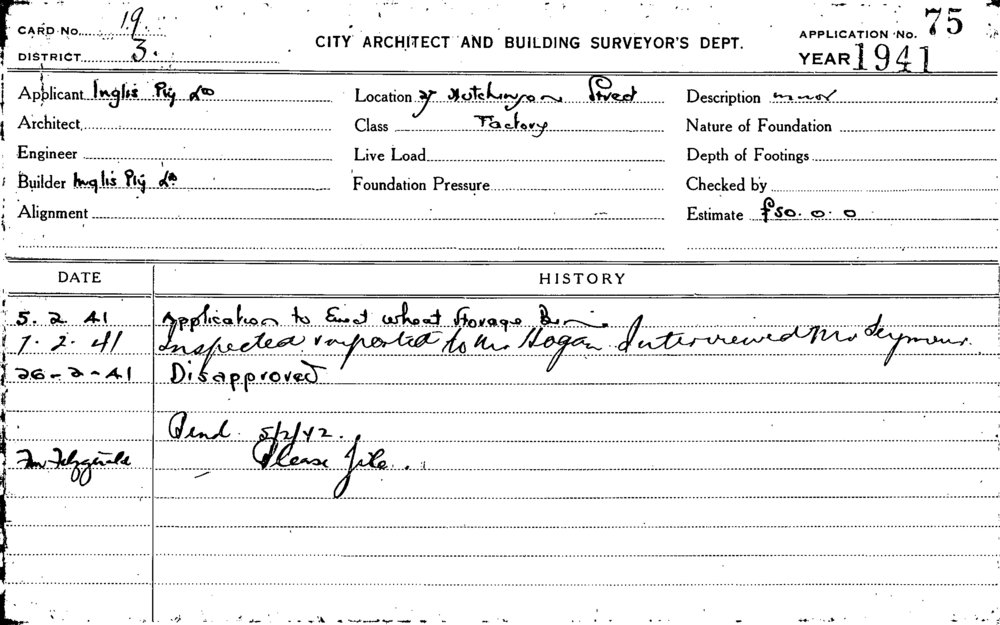 CARD No. 19.
DISTRICT 3.
CITY ARCHITECT AND BUILDING SURVEYOR'S DEPT.
APPLICATION No. 75
YEAR 1941
Applicant Inglis Pty Ld
Location Hutchinson Street
Description minor
Architect
Class Factory
Nature of Foundation
Engineer
Live Load
Depth of Footings
Builder Inglis Pty Ld.
Foundation Pressure
Checked by
Alignment
Estimate £50. 0. 0
DATE HISTORY
5. 2. 41 Application to Erect wheat storage Bin.
7. 2. 41 Inspected & reported to Mr Hogan. Interviewed Mr Seymour.
26-2-41 Disapproved
Pend 5/2/42.
Fitzgerald Please file.